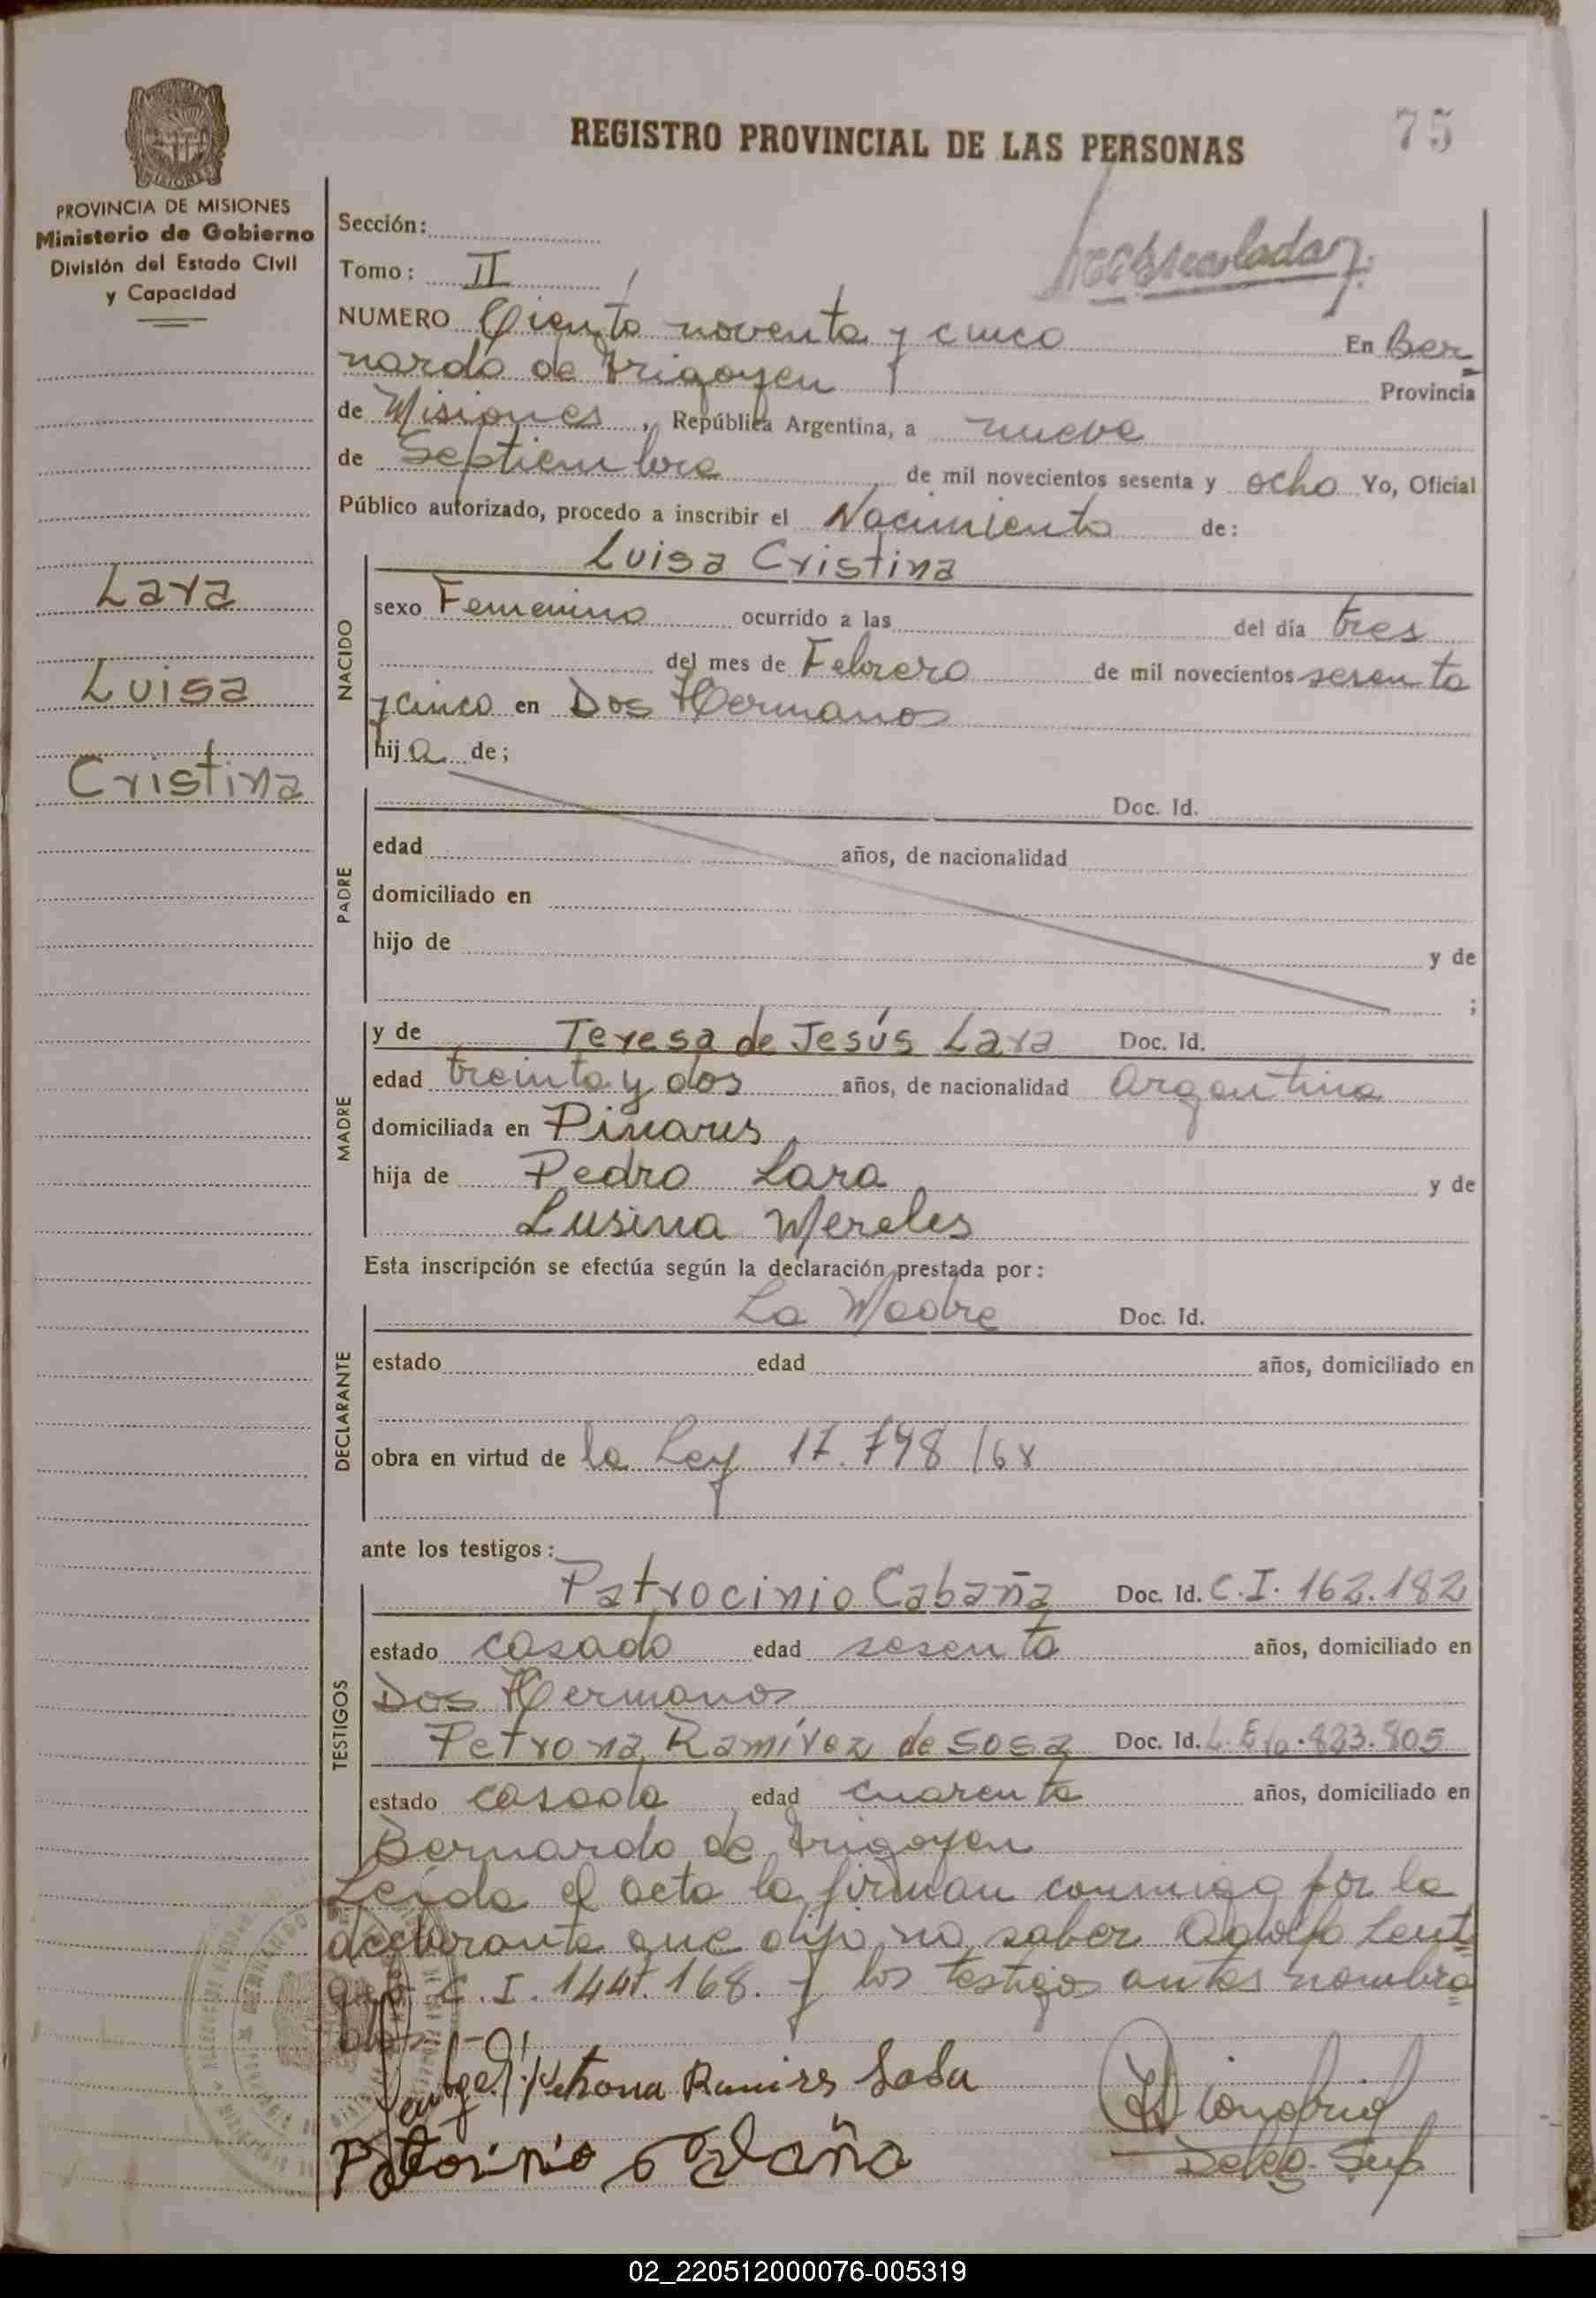 75
REGISTRO PROVINCIAL DE LAS PERSONAS
PROVINCIA DE MISIONES
Ministerio de Gobierno
División del Estado Civil
y Capacidad
Lara
Luisa
Cristina
Sección:
Tomo: II
NUMERO Ciento noventa y cinco En Ber=
nardo de Irigoyen Provincia
de Misiones, República Argentina, a nueve
de Septiembre de mil novecientos sesenta y ocho Yo, Oficial
Público autorizado, procedo a inscribir el Nacimiento de:
NACIDO
Luisa Cristina
sexo Femenino ocurrido a las del día tres
del mes de Febrero de mil novecientos sesenta
y cinco en Dos Hermanos
hija de;
PADRE
Doc. Id.
edad años, de nacionalidad
domiciliado en
hijo de y de
;
MADRE
y de Teresa de Jesús Lara Doc. Id.
edad treinta y dos años, de nacionalidad Argentina
domiciliada en Pinares
hija de Pedro Lara y de
Lusina Mereles
Esta inscripción se efectúa según la declaración prestada por:
DECLARANTE
La Madre Doc. Id.
estado edad años, domiciliado en
obra en virtud de la Ley 17.748/68
ante los testigos:
TESTIGOS
Patrocinio Cabaña Doc. Id. C.I. 162.182
estado casado edad sesenta años, domiciliado en
Dos Hermanos
Petrona Ramírez de Sosa Doc. Id.
estado casada edad cuarenta años, domiciliado en
Bernardo de Irigoyen
Leída el acta la firman conmigo por la
declarante que dijo no saber Adolfo
C.I. 168. y los testigos antes nombra=
dos.-
Petrona Ramires Sosa
02_220512000076-005319